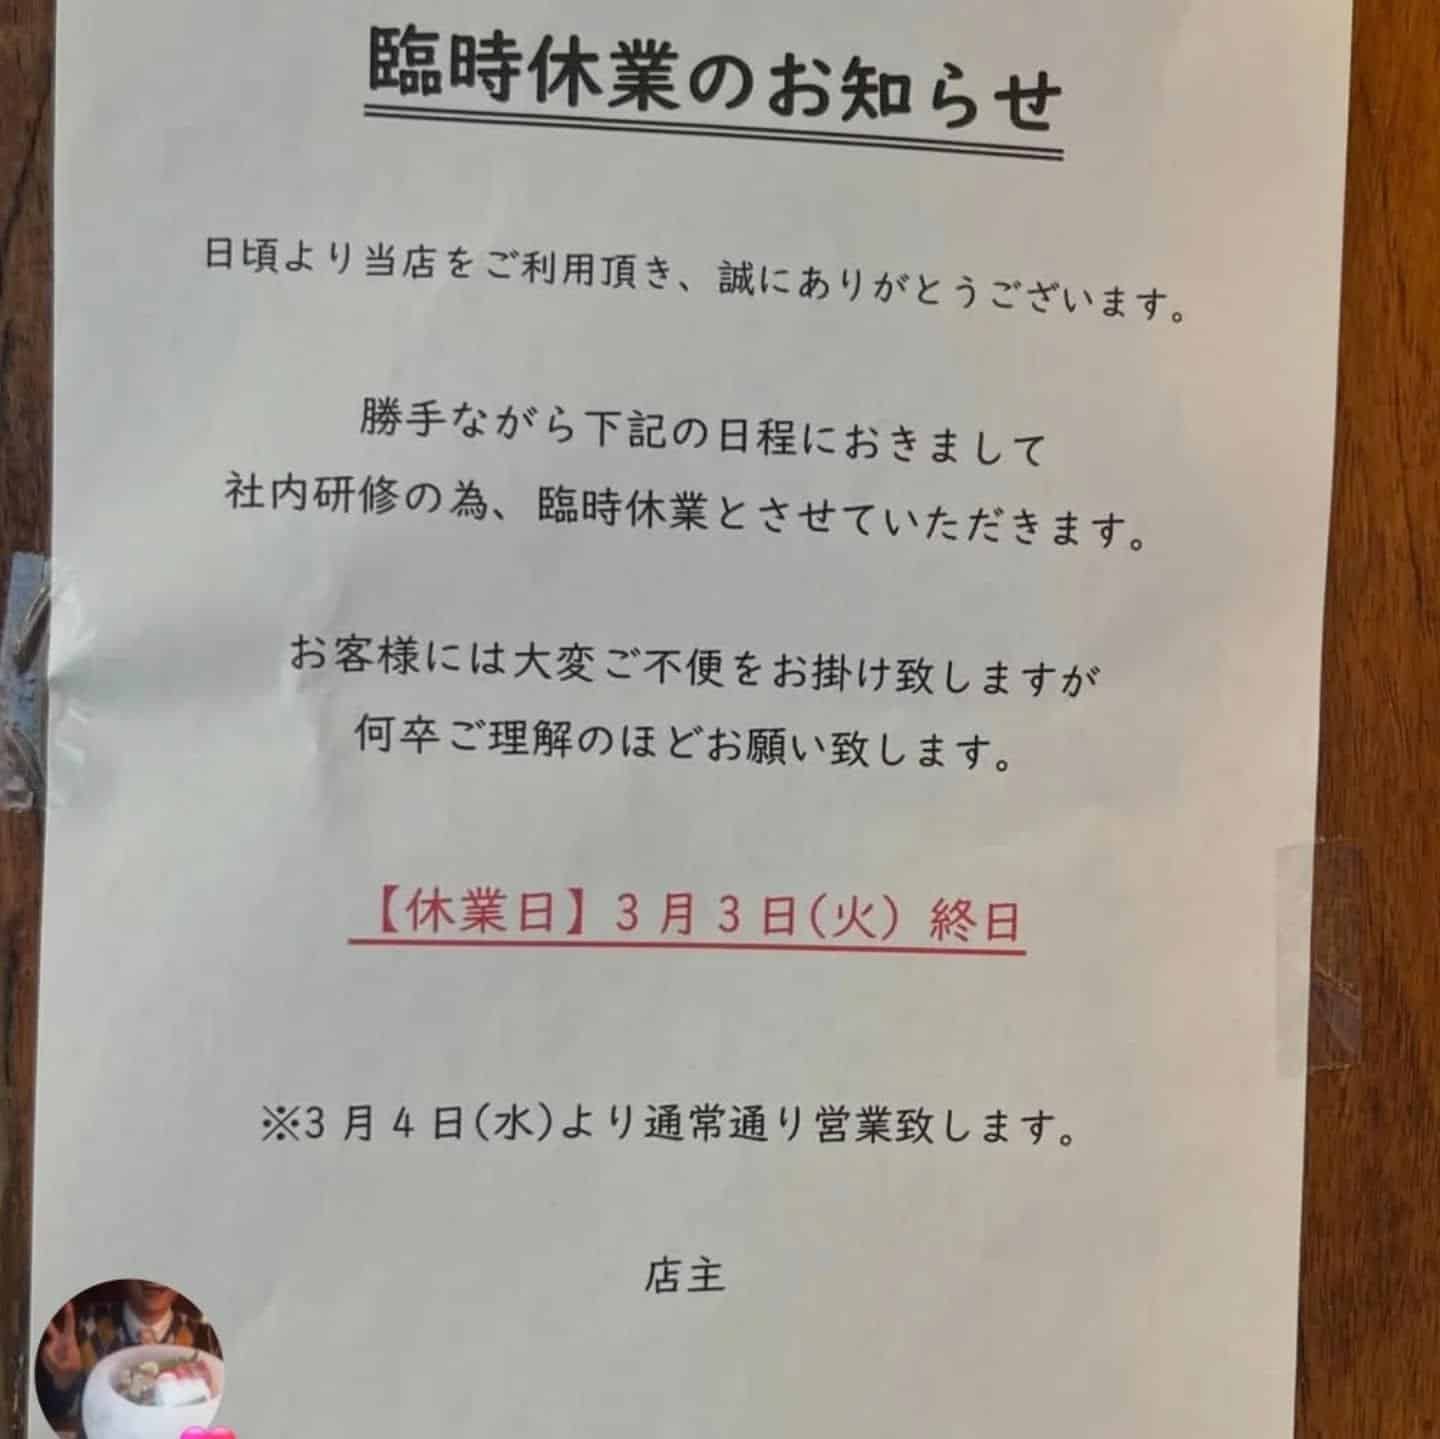 臨時休業のお知らせ
日頃より当店をご利用頂き、誠にありがとうございます。
勝手ながら下記の日程におきまして
社内研修の為、臨時休業とさせていただきます。
お客様には大変ご不便をお掛け致しますが
何卒ご理解のほどお願い致します。
【休業日】3月3日(火) 終日
※3月4日(水)より通常通り営業致します。
店主